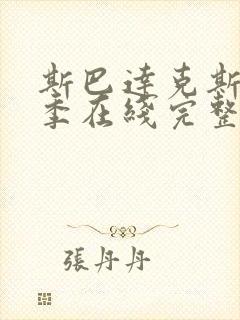 斯巴達克斯
季在綫完整
張丹丹